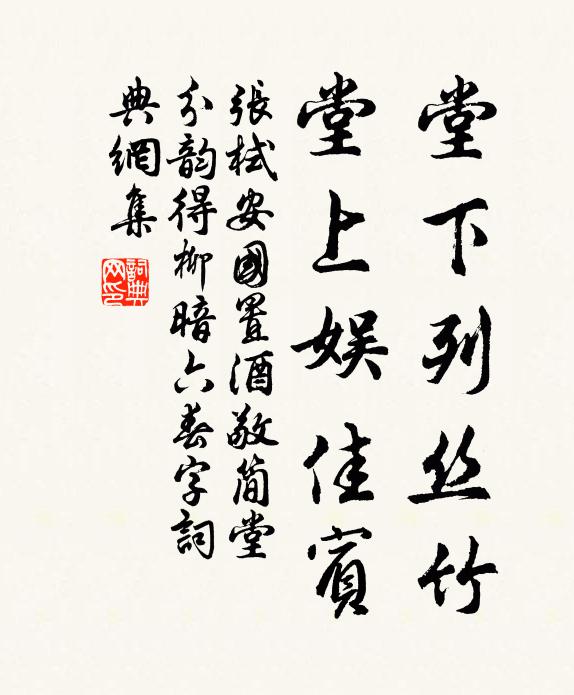 堂下列丝竹
堂上娱佳賓
張栻安國置酒敬简堂
分韵得柳暗六春字詞
典網集
詞典
网印